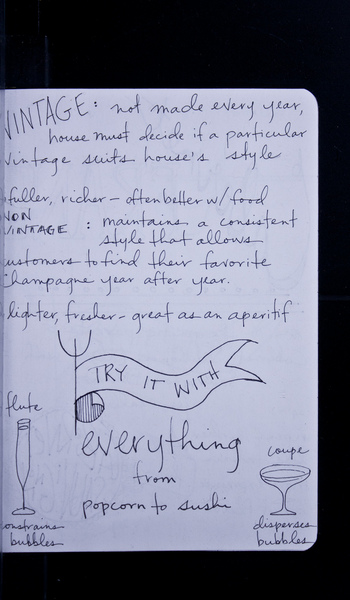 VINTAGE: not made every year,
house must decide if a particular
vintage suits house's style
fuller, richer – often better w/ food
NON
VINTAGE : maintains a consistent
style that allows
customers to find their favorite
champagne year after year.
lighter, fresher – great as an aperitif
TRY IT WITH
everything
from
popcorn to sushi
flute
constrains
bubbles
coupe
disperses
bubbles